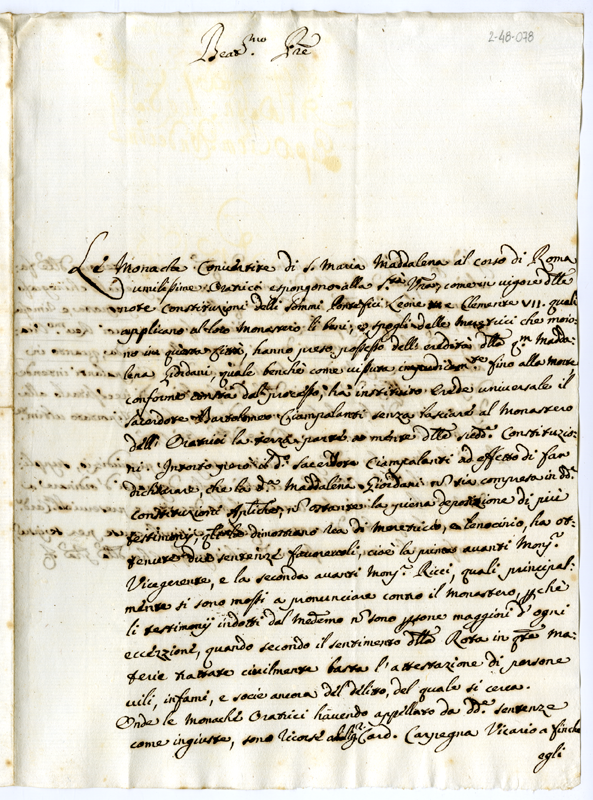 2-48-078
Beat.mo Pre
Le Monache Convertite di S. Maria Maddalena al corso di Roma
umilissime Oratrici espongono alla S.tà Vra, come in vigore delle
note Constituzioni delli Sommi Pontefici Leone e Clemente VII. quali
applicano al loro Monastero li beni, e spogli delle meretrici che moio-
no in questa Città, hanno preso possesso delle eredità della qm Madda-
lena Giordani, quale benche come vissuta impudicam.te fino alla morte
conforme consta dal processo, ha instituito Erede universale il
Sacerdote Bartolomeo Ciampalanti senza lasciare al Monastero
delli Oratrici la terza parte a mente delle sud.e Constituzio-
ni. Intanto però il d.o Sacerdote Ciampalanti ad effetto di far
dichiarare, che la d.a Maddalena Giordani n. sia compresa in dd.e
constitutioni Apliche, n. ostante la piena deposizione di più
testimonij che la dimostrano rea di meretricio, e lenocinio, ha ot-
tenute due sentenze favorevoli, cioè la prima avanti Mons.r
Vicegerente, e la seconda avanti Mons.r Ricci, quali principal-
mente si sono mossi a pronunciare contro il monastero, pchè
li testimonij indotti dal med.mo n. sono psone maggiori d'ogni
eccezzione, quando secondo il sentimento della Rota in qste ma-
terie trattate civilmente basta l'attestazione di persone
vili, infami, e socie ancora del delitto, del quale si cerca.
Onde le Monache Oratrici havendo appellato da dd.e sentenze
come ingiuste, sono ricorse Card. Carpegna Vicario a finche
egli